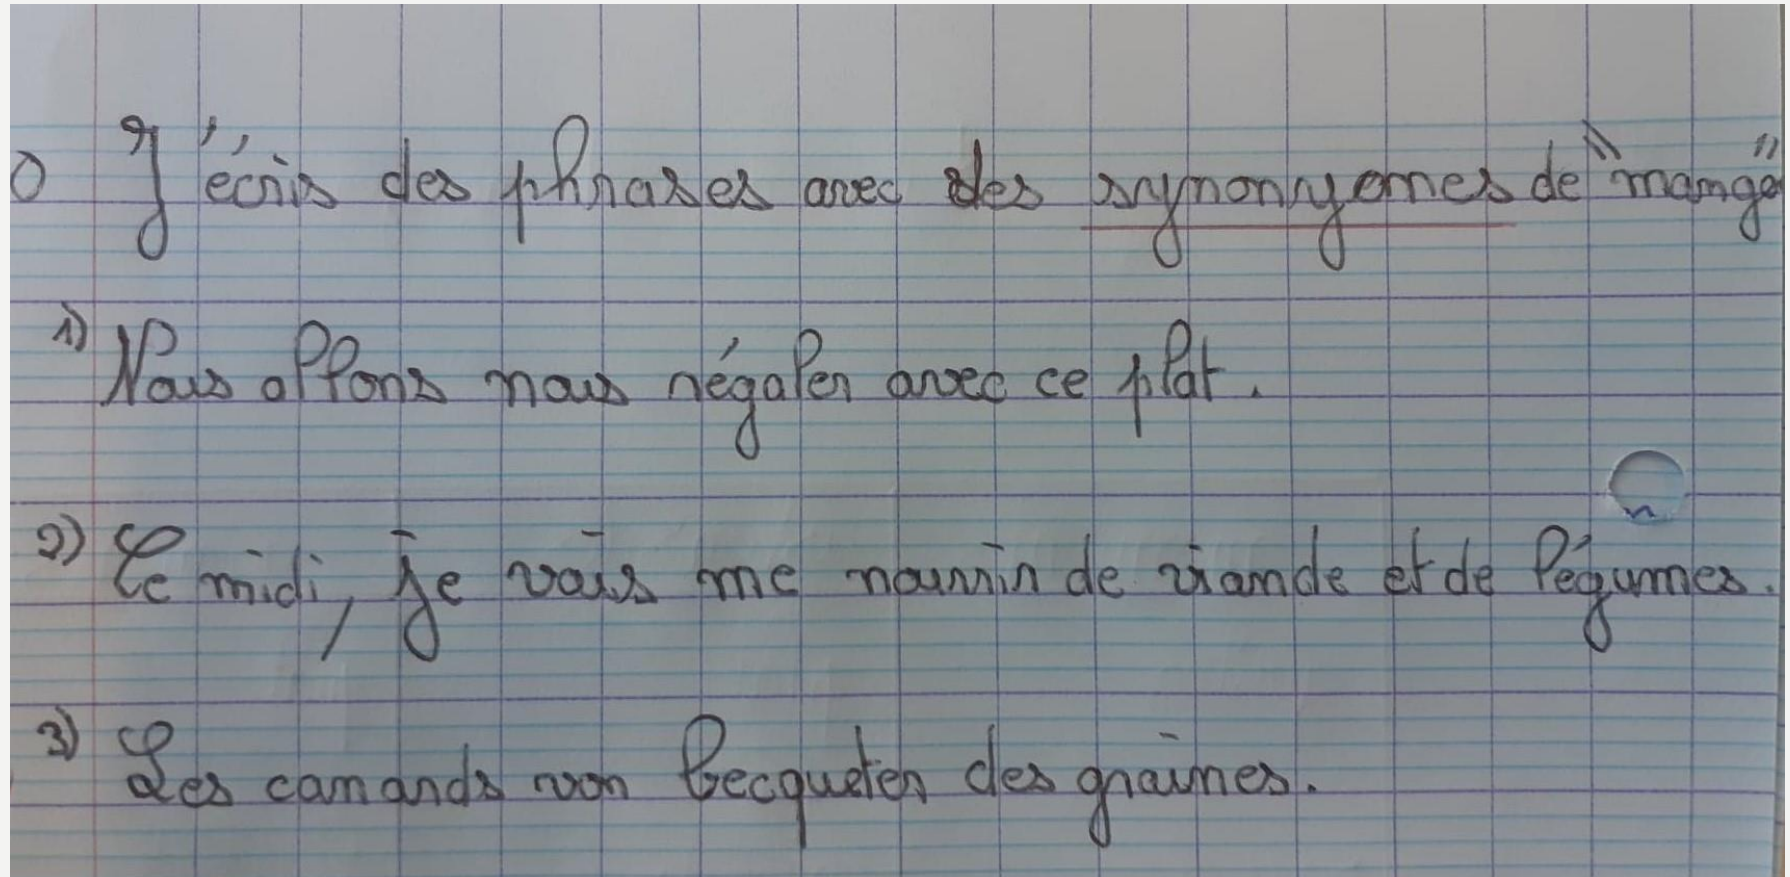 J'écris des phrases avec des synonyomes de "manger"
1) Nous allons nous régaler avec ce plat.
2) Ce midi, je vais me nourrir de viande et de légumes.
3) Les canards von becqueter des graines.